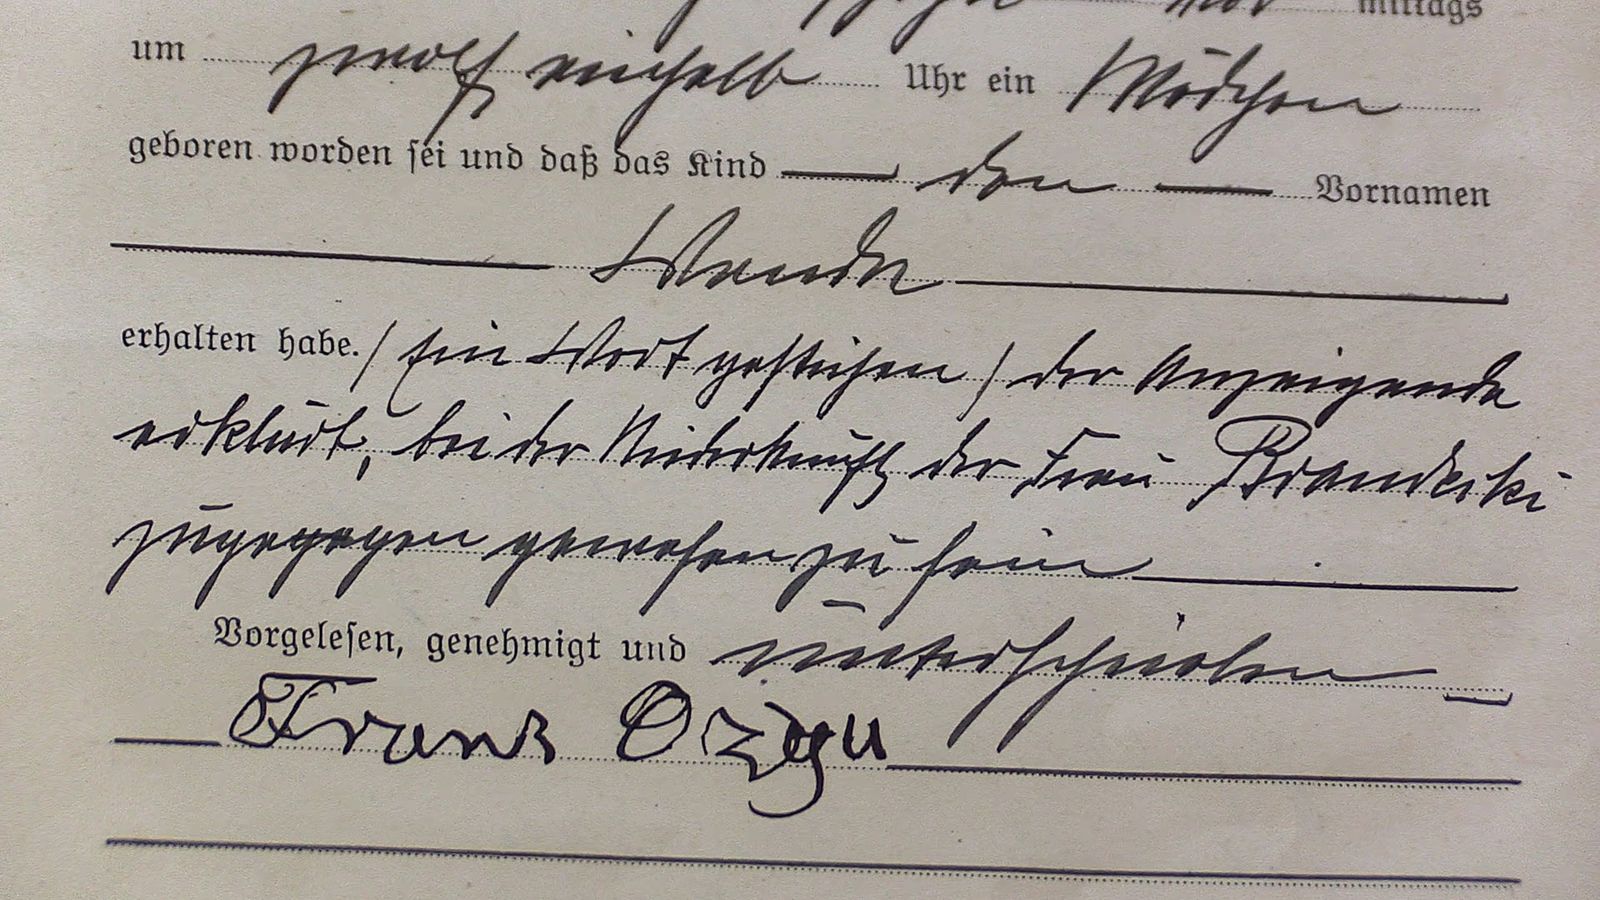 mittags
um zwölf einhalb Uhr ein Mädchen
geboren worden sei und daß das Kind den Vornamen
Wanda
erhalten habe. / Ein Wort gestrichen / der Anzeigende
erklärt, bei der Niederkunft der Frau
zugegegen gewesen zu sein
Vorgelesen, genehmigt und unterschrieben
Franz